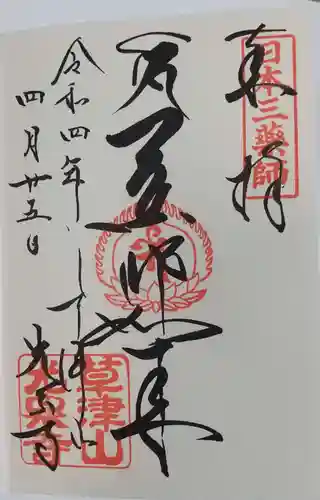 奉拝
日本三薬師
薬師如来
令和四年
四月廿五日
草津山
光泉寺